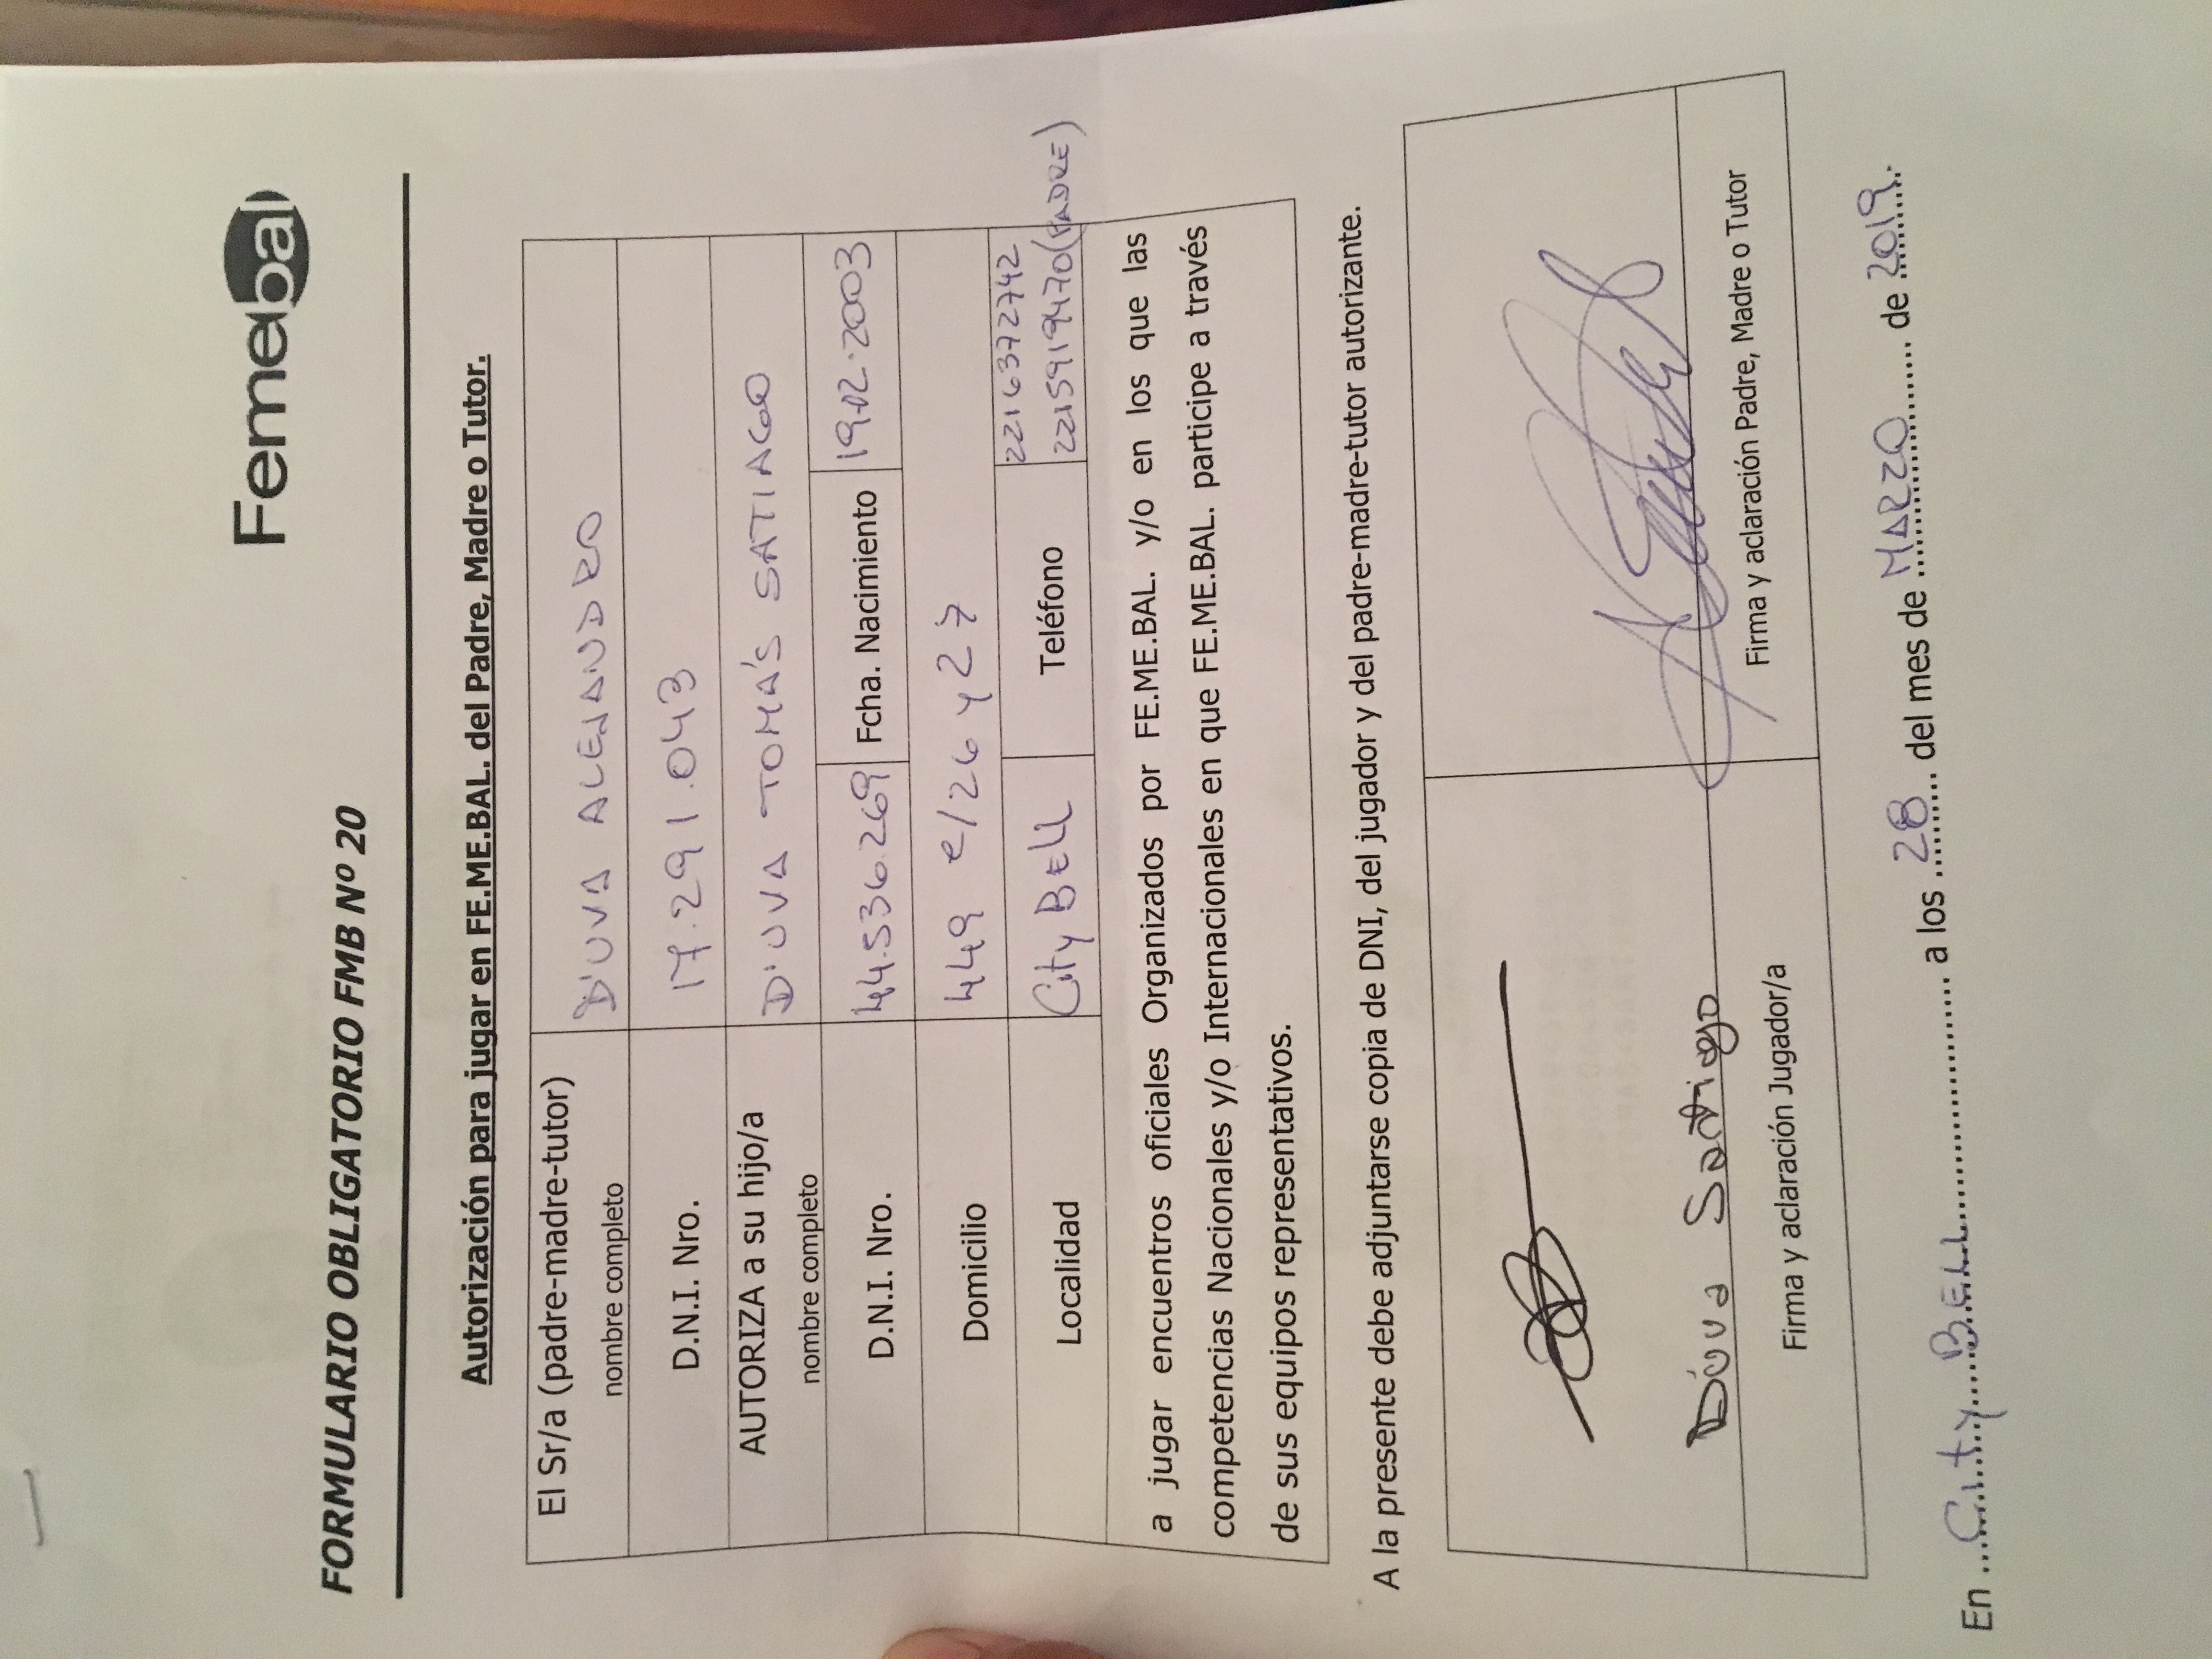 Femebal
FORMULARIO OBLIGATORIO FMB Nº 20
Autorización para jugar en FE.ME.BAL. del Padre, Madre o Tutor.
El Sr/a (padre-madre-tutor)
nombre completo
D'UVA ALEJANDRO
D.N.I. Nro.
17.291.043
AUTORIZA a su hijo/a
nombre completo
D'UVA TOMA'S SATIAGO
D.N.I. Nro. 44.536.269 Fcha. Nacimiento 19.02.2003
Domicilio 449 e/26 y 27
Localidad City BELL Teléfono 2216372742
2215919470 (PADRE)
a jugar encuentros oficiales Organizados por FE.ME.BAL. y/o en los que las
competencias Nacionales y/o Internacionales en que FE.ME.BAL. participe a través
de sus equipos representativos.
A la presente debe adjuntarse copia de DNI, del jugador y del padre-madre-tutor autorizante.
D'uva Santiago
Firma y aclaración Jugador/a
Firma y aclaración Padre, Madre o Tutor
En ...City BELL... a los .28... del mes de MARZO... de 2019.